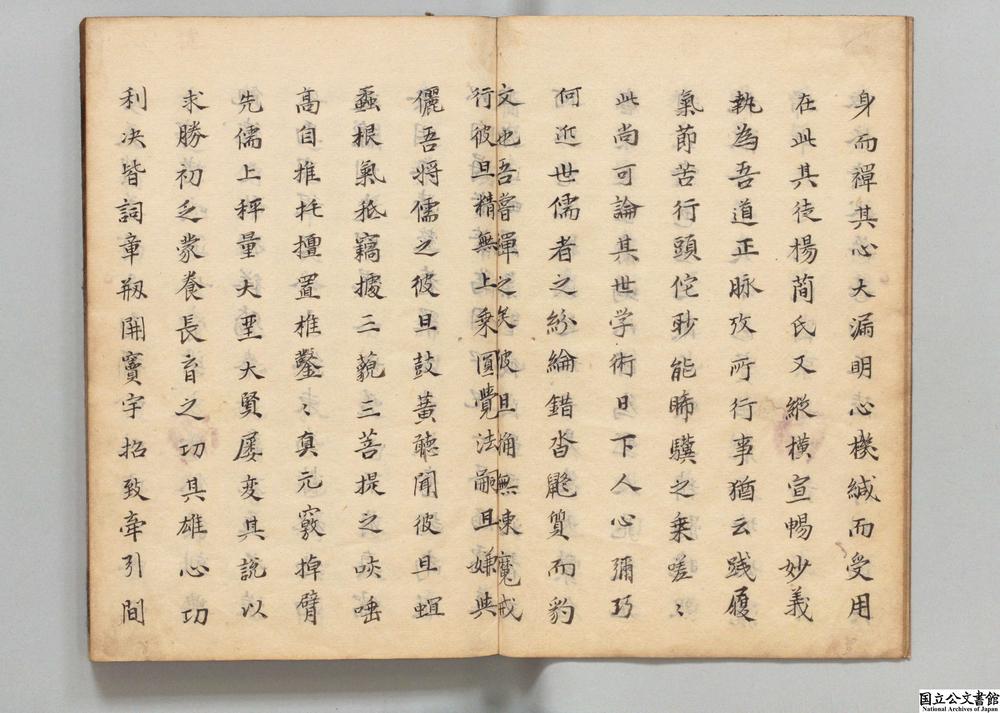 身而禪其心大漏明心機緘而受用
在此其徒楊蕳氏又縱横宣暢妙義
執為吾道正脉攷所行事猶云踐履
氣節苦行頭佗眇能睎驥之乗嗟〻
此尚可論其世学術日下人心彌巧
何近世儒者之紛綸錯沓鼯質而豹
文也吾嘗禪之矣彼且痛無悚魔戒
行彼且精無上乗圓覺法嗣且嫌與
儷吾将儒之彼且鼓簧聴聞彼且蝟
蝨根氣秪竊據二藐三菩提之唊唾
髙自推托擅置椎鑿〻真元竅掉臂
先儒上秤量大聖大賢屡変其說以
求勝初乏蒙養長育之功其雄心功
利决皆詞章剏開竇宇招致牽引間
国立公文書館
National Archives of Japan